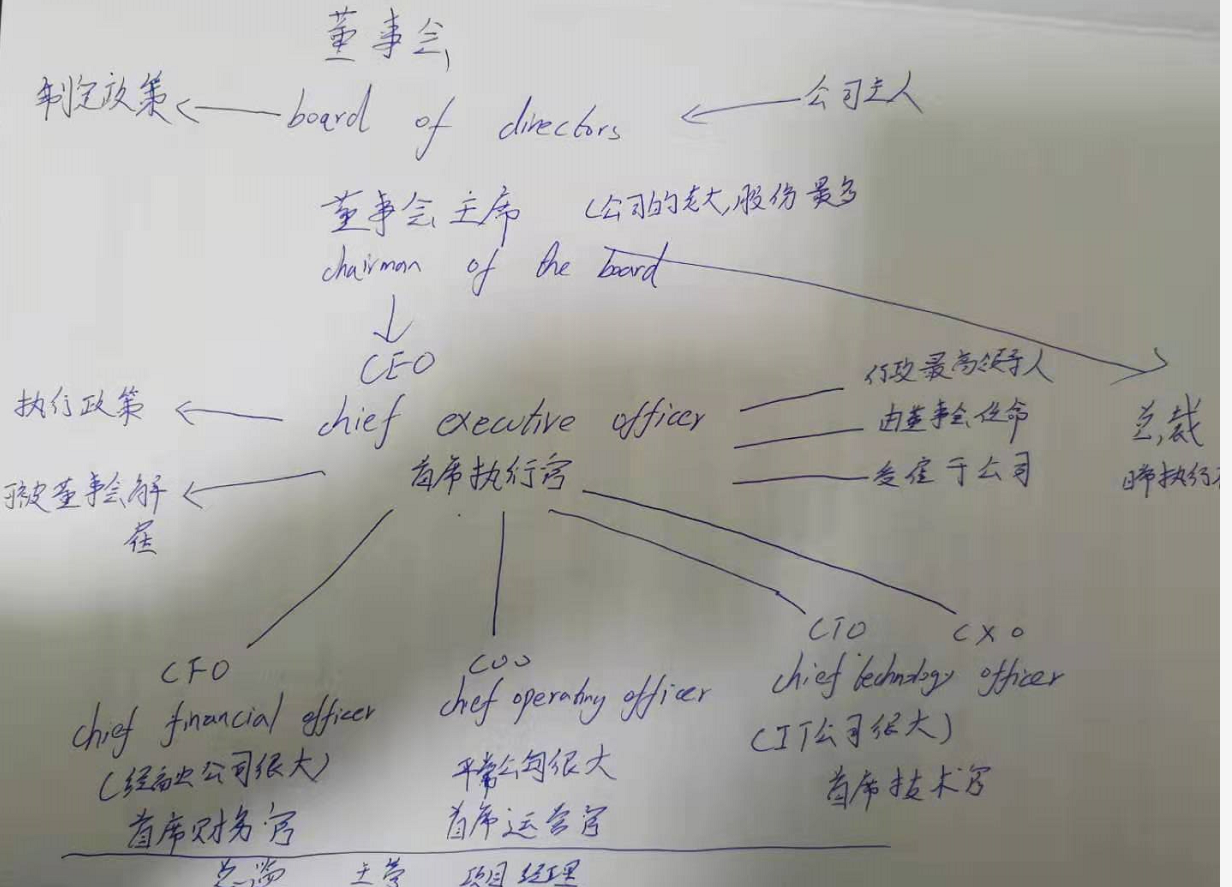 董事会
制定政策
board of directors
公司主人
董事会主席 (公司的老大,股份最多
chairman of the board
CEO
执行政策
chief executive officer
行政最高领导人
由董事会任命
受雇于公司
总裁
首席执行官
被董事会解
雇
CFO
chief financial officer
公司很大)
首席财务官
COO
chief operating officer
平常公司很大
首席运营官
CTO
CXO
chief technology officer
(IT公司很大)
首席技术官
总监 主管 项目经理